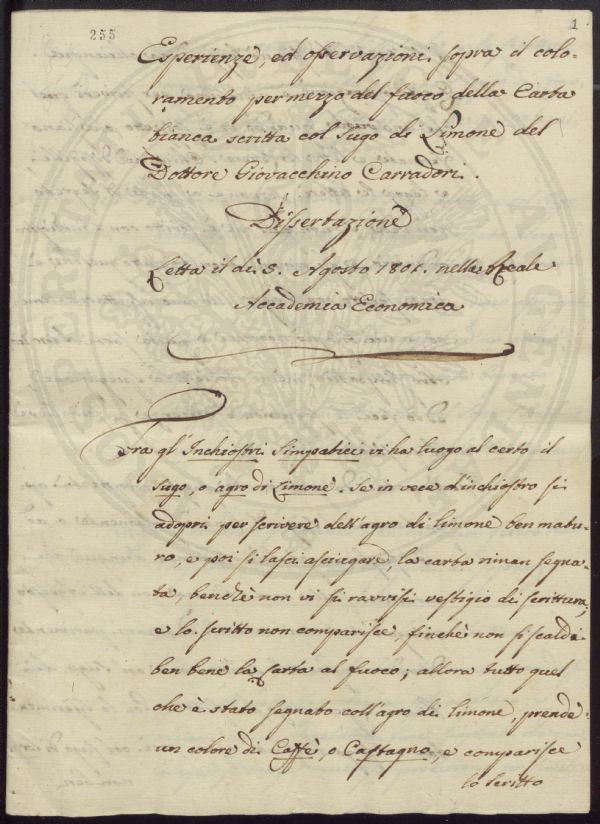 255
1
Esperienze, ed osservazioni sopra il colo-
ramento per mezzo del fuoco della Carta
bianca scritta col sugo di Limone del
Dottore Giovacchino Carradori.
Dissertazione
Letta il dì 5. Agosto 1801. nella Reale
Accademia Economica
Tra gl' Inchiostri Simpatici vi ha luogo al certo il
sugo, o agro di Limone. Se in vece d'inchiostro si
adopri per scrivere dell'agro di limone ben matu-
ro, e poi si lasci asciugare, la carta riman segna-
ta, benchè non vi si ravvisi vestigio di scrittura,
e lo scritto non comparisce, finchè non si scaldi
ben bene la Carta al fuoco; allora tutto quel
che è stato segnato coll'agro di limone, prende
un colore di Caffè, o Castagno, e comparisce
lo scritto